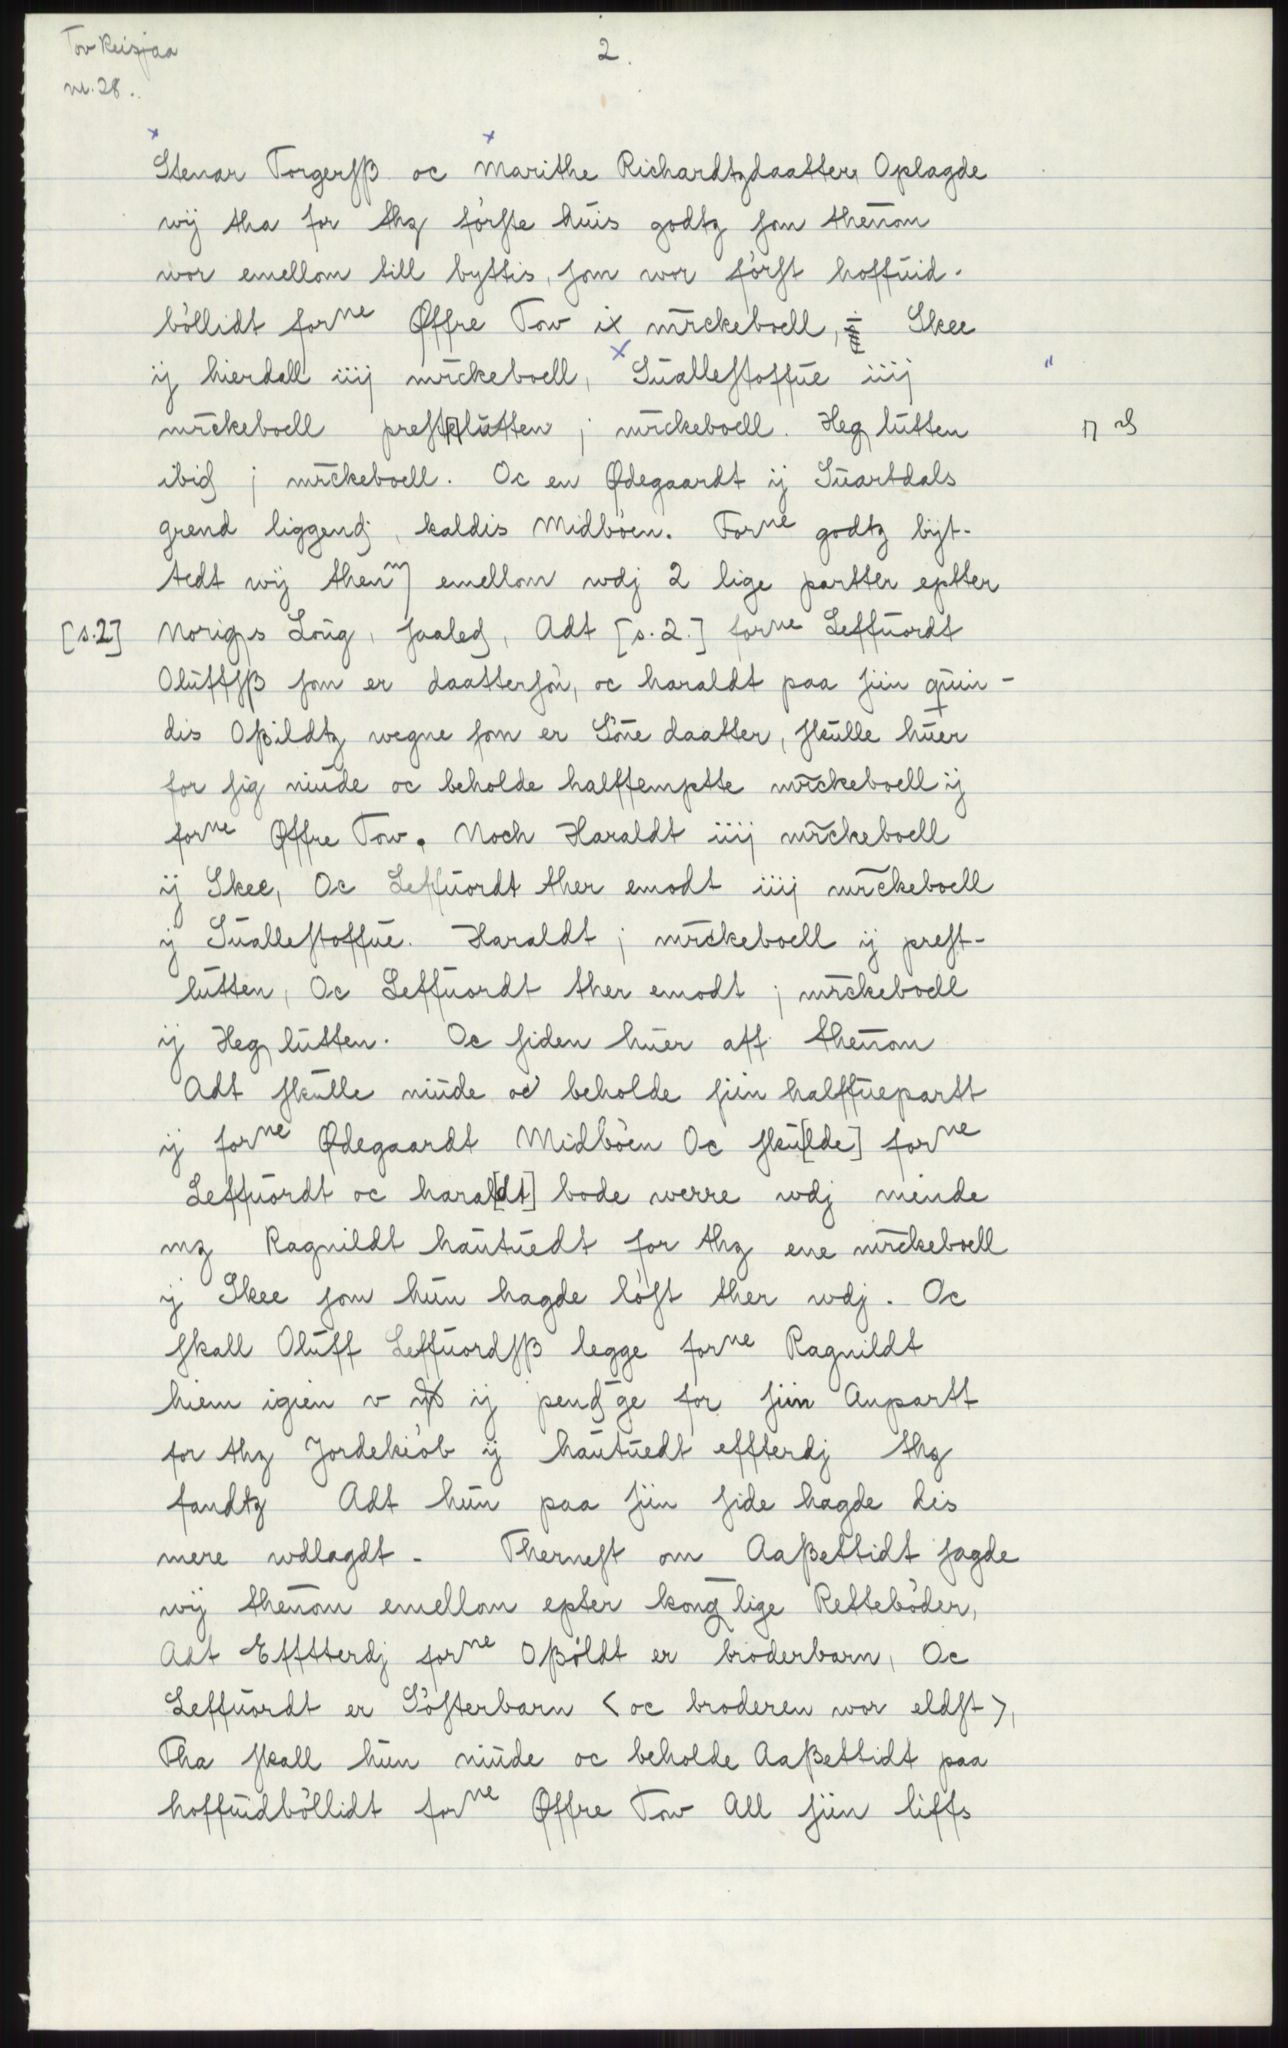 Tov Reisjaa
nr. 28.
2.
Stenar Torgerſß oc Marithe Richardtzdaatter, Oplagde
wij tha for thz förſte huis godtz ſom thennom
wor emellom till byttis, ſom wor förſt hoffuid-
böllidt forne Øffre Tow ix mrckeboell, Skee
ij hierdall iiij mrckeboell, Sualleſtoffue iiij
mrckeboell preſtlutten j mrckeboell. Heg lutten
ibid j mrckeboell. Oc en Ødegaardt ij Suartdals
grend liggend, kaldis Midböen. Forne godtz byt-
tedt wij thenm emellom wdj 2 lige partter eptter
[s.2] Norigs Loug, ſaaled, Adt [s.2.] forne Leffuordt
Oluffſß ſom er daatterſön, oc haraldt paa ſiin quin-
dis Oßildtz wegne ſom er Söne daatter, ſkulle huer
for ſig niude oc beholde halffemptte mrckeboell ij
forne Øffre Tow. Noch Haraldt iiij mrckeboell
ij Skee, Oc Leffuordt ther emodt iiij mrckeboell
ij Sualleſtoffue. Haraldt j mrckeboell ij preſt-
lutten, Oc Leffuordt ther emodt j mrckeboell
ij Heg lutten. Oc ſiden huer aff thennom
Adt ſkulle niude oc beholde ſiin halffuepartt
ij forne Ødegaardt Midböen Oc ſku[lde] forne
Leffuordt oc haral[dt] bode werre wdj minde
mz Ragnildt hautuedt for thz ene mrckeboell
ij Skee ſom hun hagde löſt ther wdj. Oc
ſkall Oluff Leffuordſß legge forne Ragnildt
hiem igien v ij pend ge for ſiin Anpartt
for thz Jordekiöb ij hautuedt effterdj thz
fandtz Adt hun paa ſiin ſide hagde dis
mere wdlagdt. Therneſt om Aaßettidt ſagde
wij thennom emellom epter konglige Retteböder,
Adt Effterdj forne Oßöldt er broderbarn, Oc
Leffuordt er Söſterbarn < oc broderen wor eldſt >,
Tha ſkall hun niude oc beholde Aaßettidt paa
hoffuidböllidt forne Øffre Tow All ſiin liffs